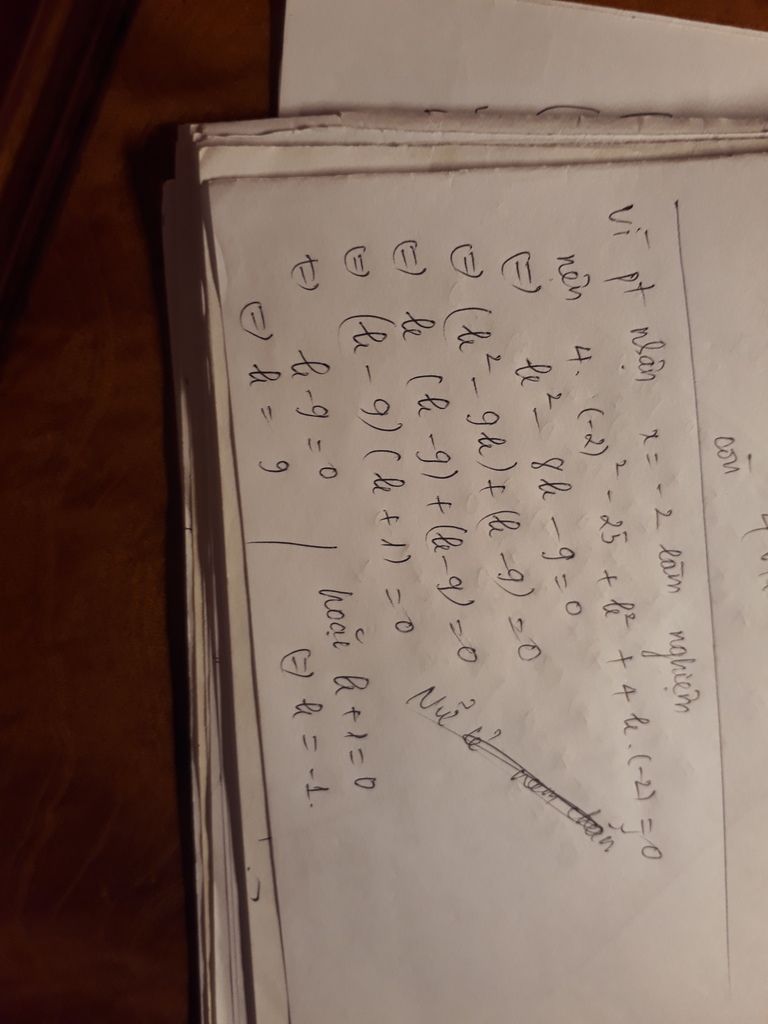 còn
Vì pt nhận x = -2 làm nghiệm
nên 4. (-2)² - 25 + k² + 4k.(-2) = 0
(=) k² - 8k - 9 = 0
(=) (k² - 9k) + (k - 9) = 0
(=) k (k - 9) + (k - 9) = 0
(=) (k - 9) (k + 1) = 0
(=) k - 9 = 0 hoặc k + 1 = 0
(=) k = 9 (=) k = -1.